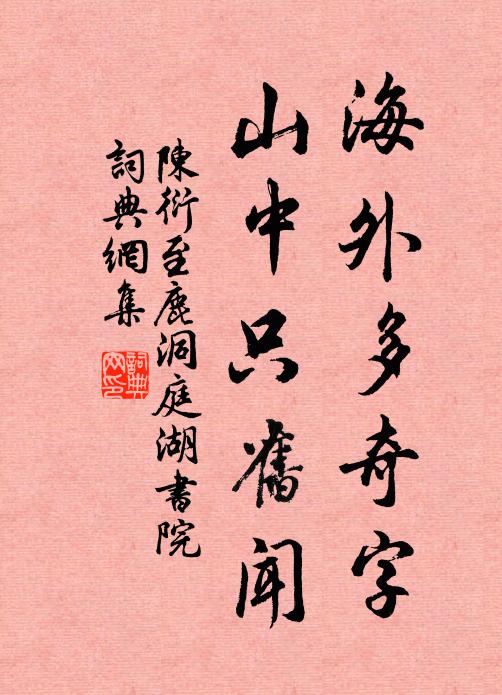 海外多奇字
山中只舊闻
陳衍至鹿洞庭湖書院
詞典網集
詞典
网印